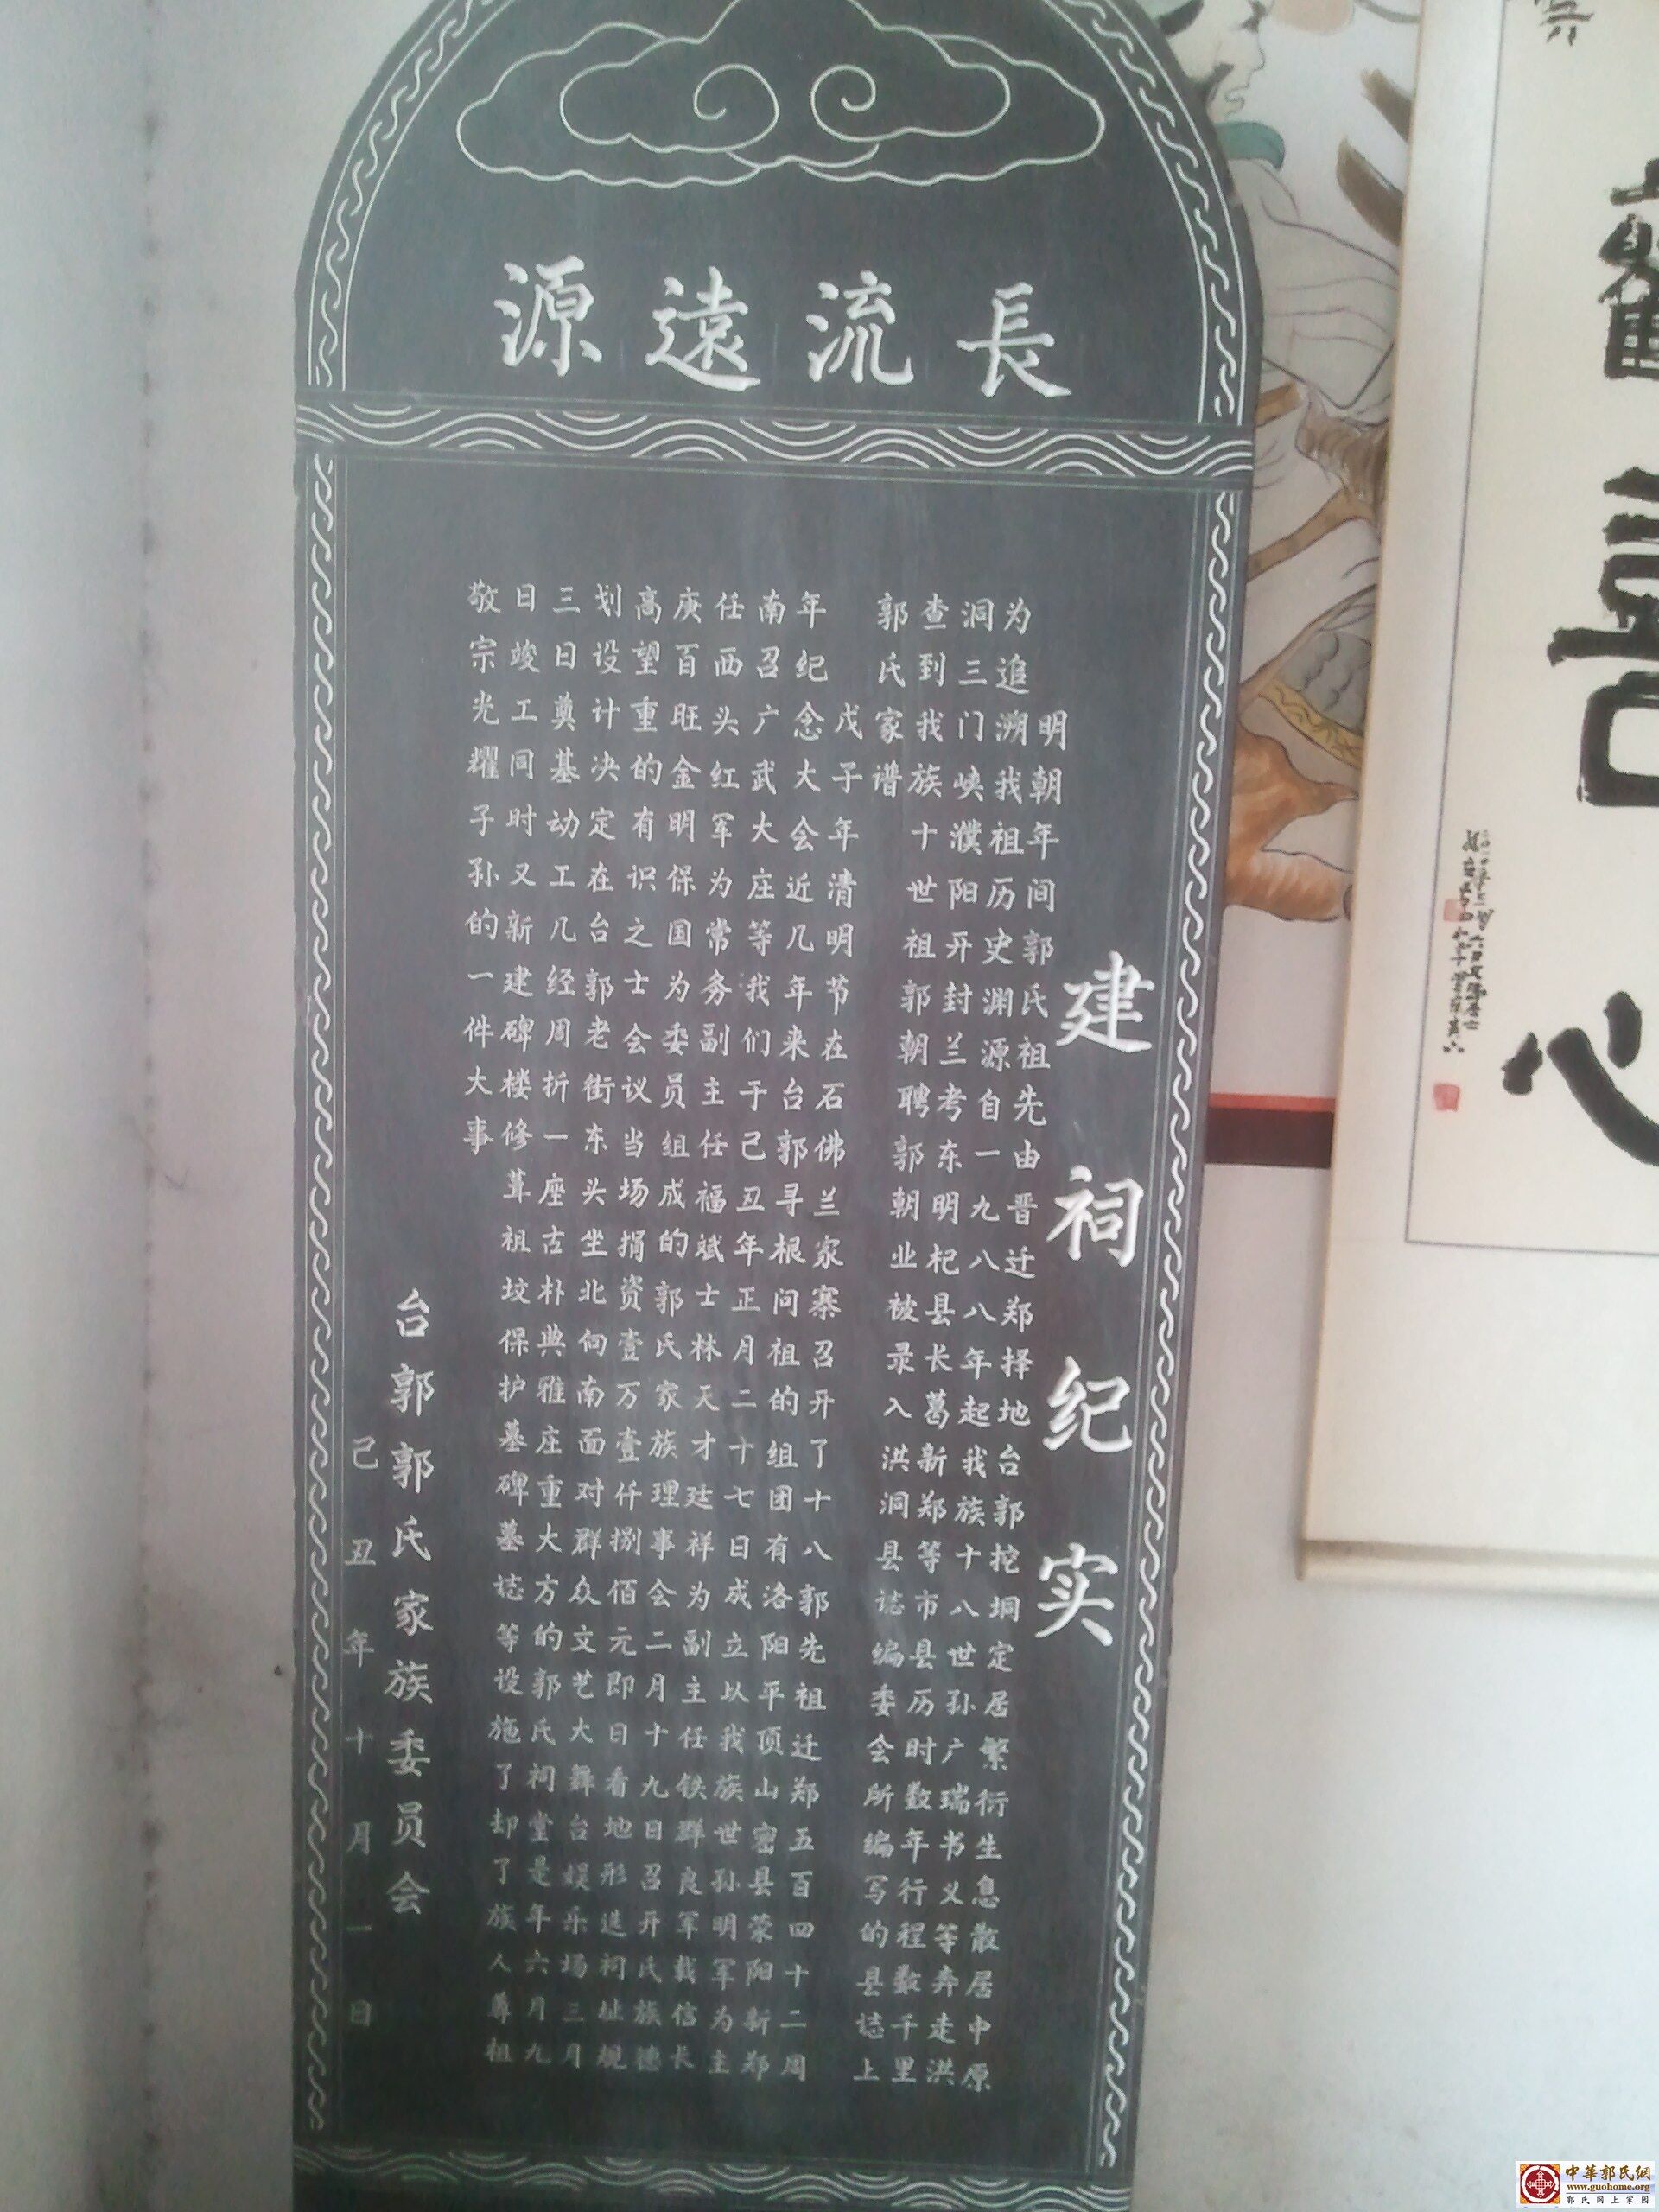 源遠流長
建祠纪实
明朝年间郭氏祖先由晋迁郑择地台郭挖垌定居繁衍生息散居中原
为追溯我祖历史渊源自一九八八年起我族十八世孙广瑞书义等奔走洪
洞三门峡濮阳开封兰考东明杞县长葛新郑等市县历时数年行程数千里
查到我族十世祖郭朝聘郭朝业被录入洪洞县誌编委会所编写的县誌上
郭氏家谱
戊子年清明节在石佛兰家寨召开了十八郭先祖迁郑五百四十二周
年纪念大会近几年来台郭寻根问祖的组团有洛阳平顶山密县荥阳新郑
南召广武大庄等我们于己丑年正月二十七日成立以我族世孙明军为主
任西头红军为常务副主任福斌士林天才廷祥为副主任铁群良军载信长
庚百旺金明保国为委员组成的郭氏家族理事会二月十九日召开氏族德
高望重的有识之士会议当场捐资壹万壹仟捌佰元即日看地形选祠址规
划设计决定在台郭老街东头坐北向南面对群众文艺大舞台娱乐场三月
三日奠基动工几经周折一座古朴典雅庄重大方的郭氏祠堂是年六月九
日竣工同时又新建碑楼修葺祖坟保护墓碑墓誌等设施了却了族人尊祖
敬宗光耀子孙的一件大事
台郭郭氏家族委员会
己丑年十月一日
心
中華郭氏網
www.guohome.org
郭氏网上家园